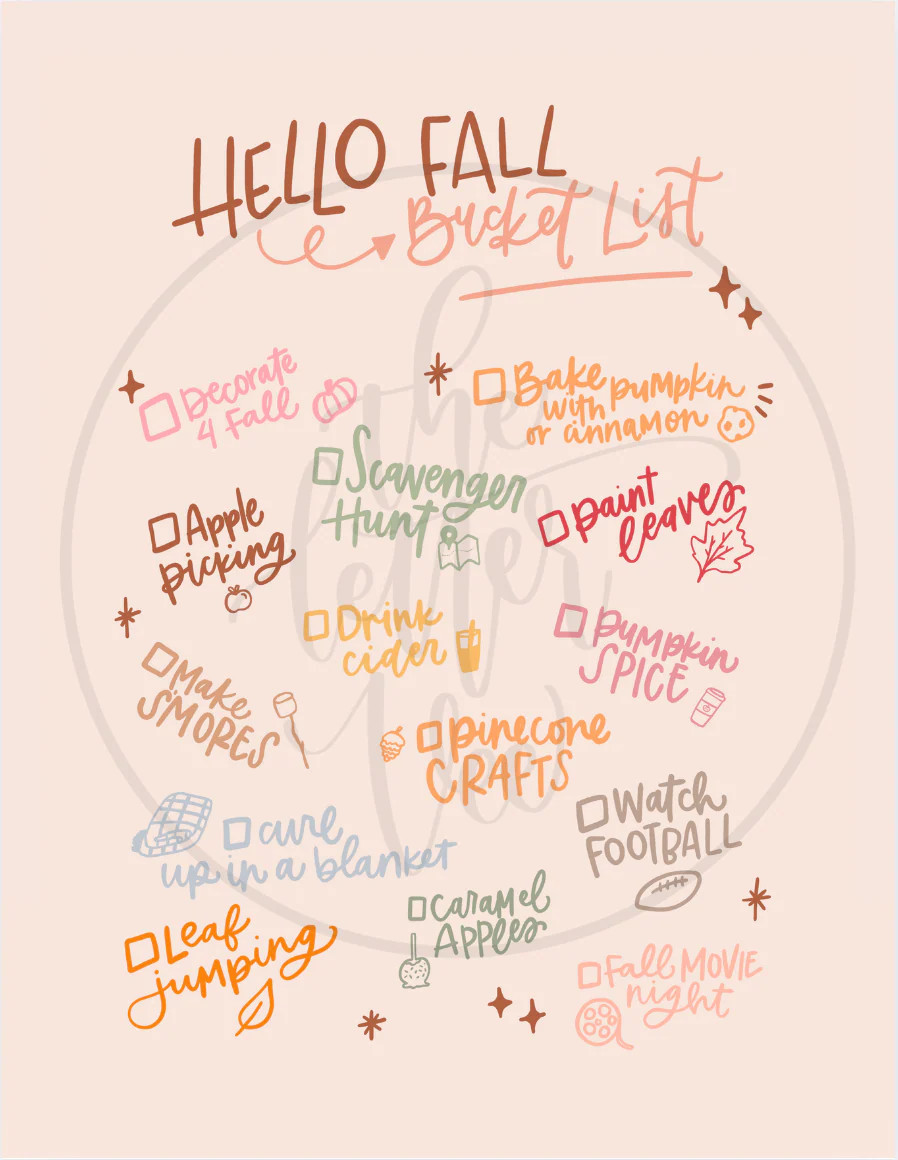 HELLO FALL
Bucket List
Decorate
4 Fall
Bake pumpkin
with
or cinnamon
Scavenger
Hunt
Apple
picking
paint
leaves
Drink
cider
pumpkin
SPICE
Make
S'MORES
pinecone
CRAFTS
Watch
FOOTBALL
cure
up in a blanket
Caramel
Apples
Leaf
jumping
Fall MOVIE
night
the
letter
lee